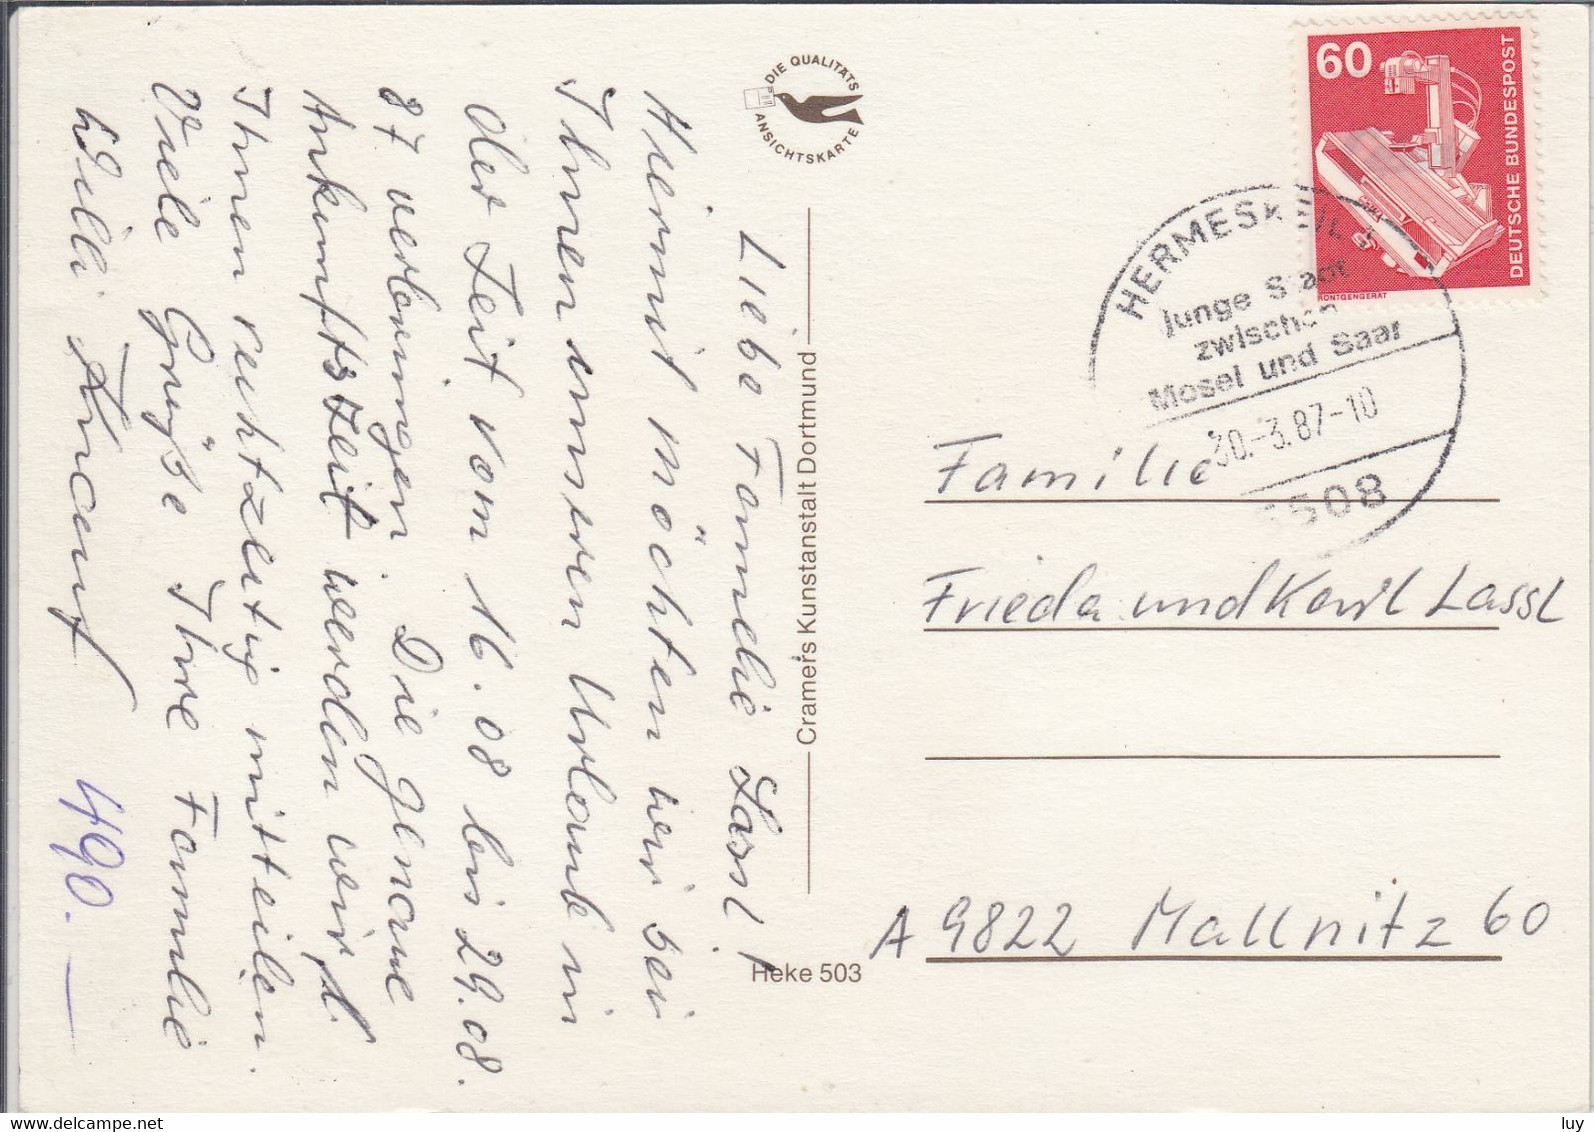 Liebe Familie Lassl!
Hiermit möchten wir bei
Ihnen unseren Urlaub in
der Zeit vom 16.08 bis 29.08.
87 verbringen. Die genaue
Ankunftszeit werden wir
Ihnen rechtzeitig mitteilen.
Viele Grüße Ihre Familie
Willi
490.—
DIE QUALITÄTS
ANSICHTSKARTE
Cramers Kunstanstalt Dortmund
Heke 503
60
DEUTSCHE BUNDESPOST
RÖNTGENGERÄT
HERMESKEIL
junge Stadt
zwischen
Mosel und Saar
30.-3.87-10
5508
Familie
Frieda und Karl Lassl
A 9822 Mallnitz 60
delcampe.net
luy